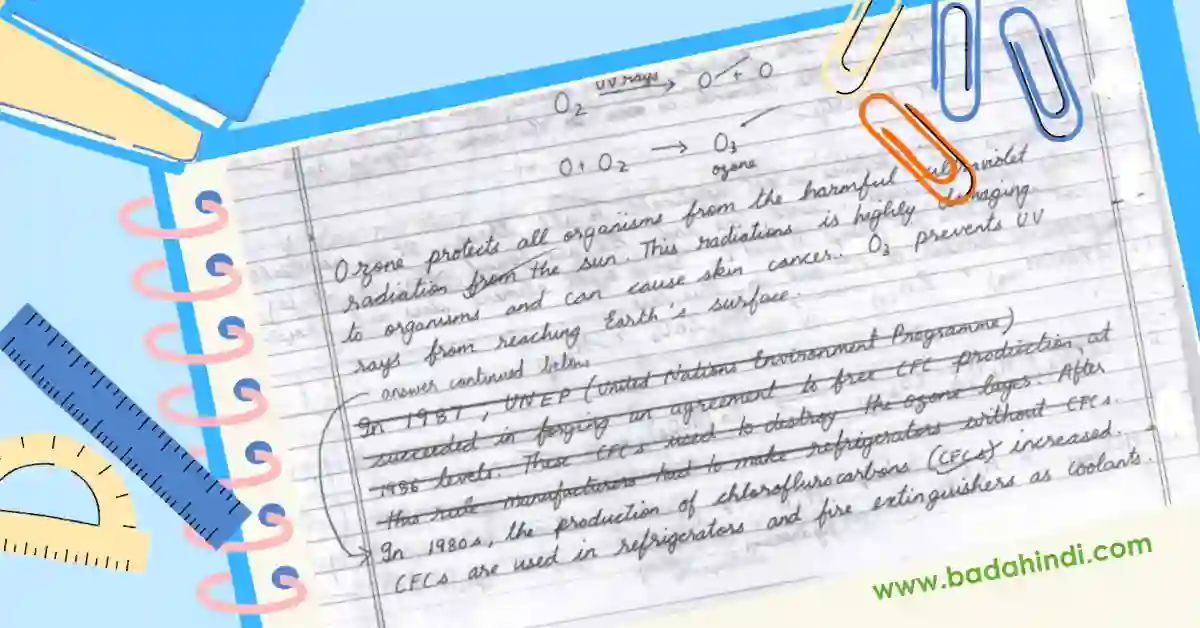 O₂ UV rays → O + O
O + O₂ → O₃
ozone
Ozone protects all organisms from the harmful ultraviolet
radiation from the sun. This radiations is highly damaging
to organisms and can cause skin cancer. O₃ prevents UV
rays from reaching Earth's surface.
answer continued below
In 1987, UNEP (United Nations Environment Programme)
succeeded in forging an agreement to free CFC production at
1986 levels. These CFCs used to destroy the ozone layer. After
this rule manufacturers had to make refrigerators without CFCs.
In 1980s, the production of chloroflurocarbons (CFCs) increased.
CFCs are used in refrigerators and fire extinguishers as coolants.
www.badahindi.com